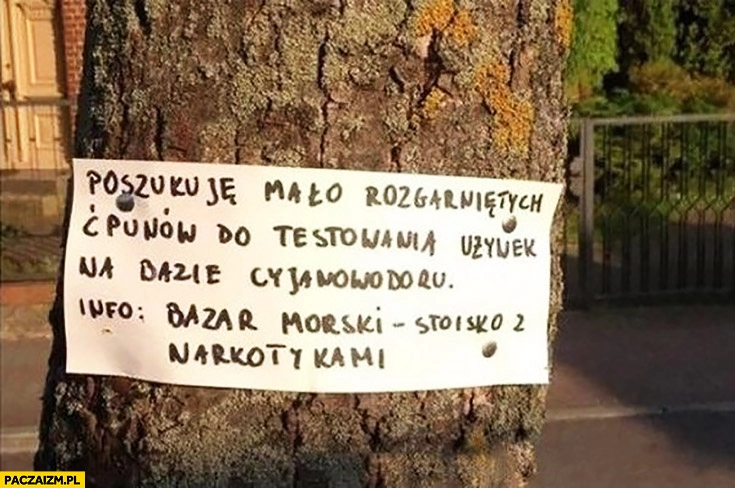 POSZUKUJĘ MAŁO ROZGARNIĘTYCH
ĆPUNÓW DO TESTOWANIA UŻYWEK
NA BAZIE CYJANOWODORU.
INFO: BAZAR MORSKI – STOISKO Z
NARKOTYKAMI
PACZAIZM.PL